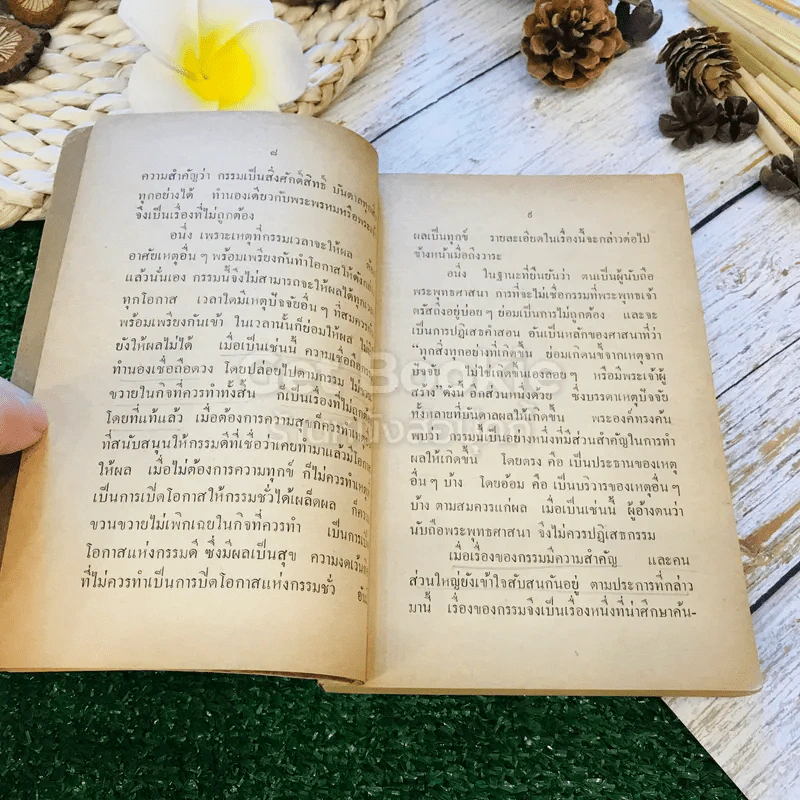 ๘
ความสำคัญว่า กรรมเป็นสิ่งศักดิ์สิทธิ์ บันดาลทุก
ทุกอย่างได้ ทำนองเดียวกับพระพรหมหรือพระ
จึงเป็นเรื่องที่ไม่ถูกต้อง
อนึ่ง เพราะเหตุที่กรรมเวลาจะให้ผล
อาศัยเหตุอื่นๆ พร้อมเพรียงกันทำโอกาสให้ดัง
แล้วนั่นเอง กรรมนี้จึงไม่สามารถจะให้ผลได้ทุก
ทุกโอกาส เวลาใดมีเหตุปัจจัยอื่นๆ ที่สมควร
พร้อมเพรียงกันเข้า ในเวลานั้นก็ย่อมให้ผล
ยังให้ผลไม่ได้ เมื่อเป็นเช่นนี้ ความเชื่อถือ
ทำนองเชื่อถือดวง โดยปล่อยไปตามกรรม
ขวายในกิจที่ควรทำทั้งสิ้น ก็เป็นเรื่องที่ไม่ถูก
โดยที่แท้แล้ว เมื่อต้องการความสุข ก็ควรทำ
ที่สนับสนุนให้กรรมดีที่เชื่อว่าเคยทำมาแล้วมีโอกาส
ให้ผล เมื่อไม่ต้องการความทุกข์ ก็ไม่ควรทำเหตุ
เป็นการเปิดโอกาสให้กรรมชั่วได้เผล็ดผล ก็ควร
ขวนขวายไม่เพิกเฉยในกิจที่ควรทำ เป็นการเปิด
โอกาสแห่งกรรมดี ซึ่งมีผลเป็นสุข ความงดเว้น
ที่ไม่ควรทำเป็นการปิดโอกาสแห่งกรรมชั่ว อัน
๙
ผลเป็นทุกข์ รายละเอียดในเรื่องนี้จะกล่าวต่อไป
ข้างหน้าเมื่อถึงวาระ
อนึ่ง ในฐานะที่ยืนยันว่า ตนเป็นผู้นับถือ
พระพุทธศาสนา การที่จะไม่เชื่อกรรมที่พระพุทธเจ้า
ตรัสถึงอยู่บ่อยๆ ย่อมเป็นการไม่ถูกต้อง และจะ
เป็นการปฏิเสธคำสอน อันเป็นหลักของศาสนาที่ว่า
“ทุกสิ่งทุกอย่างที่เกิดขึ้น ย่อมเกิดนี้จากเหตุจาก
ปัจจัย ไม่ใช่เกิดขึ้นเองลอยๆ หรือมีพระเจ้าผู้
สร้าง” ดังนี้ อีกส่วนหนึ่งด้วย ซึ่งบรรดาเหตุปัจจัย
ทั้งหลายที่บันดาลผลให้เกิดขึ้น พระองค์ทรงค้น
พบว่า กรรมนี้เป็นอย่างหนึ่งที่มีส่วนสำคัญในการทำ
ผลให้เกิดขึ้น โดยตรง คือ เป็นประธานของเหตุ
อื่นๆ บ้าง โดยอ้อม คือ เป็นบริวารของเหตุอื่นๆ
บ้าง ตามสมควรแก่ผล เมื่อเป็นเช่นนี้ ผู้อ้างตนว่า
นับถือพระพุทธศาสนา จึงไม่ควรปฏิเสธกรรม
เมื่อเรื่องของกรรมมีความสำคัญ และคน
ส่วนใหญ่ยังเข้าใจสับสนกันอยู่ ตามประการที่กล่าว
มานี้ เรื่องของกรรมจึงเป็นเรื่องหนึ่งที่น่าศึกษาค้น-